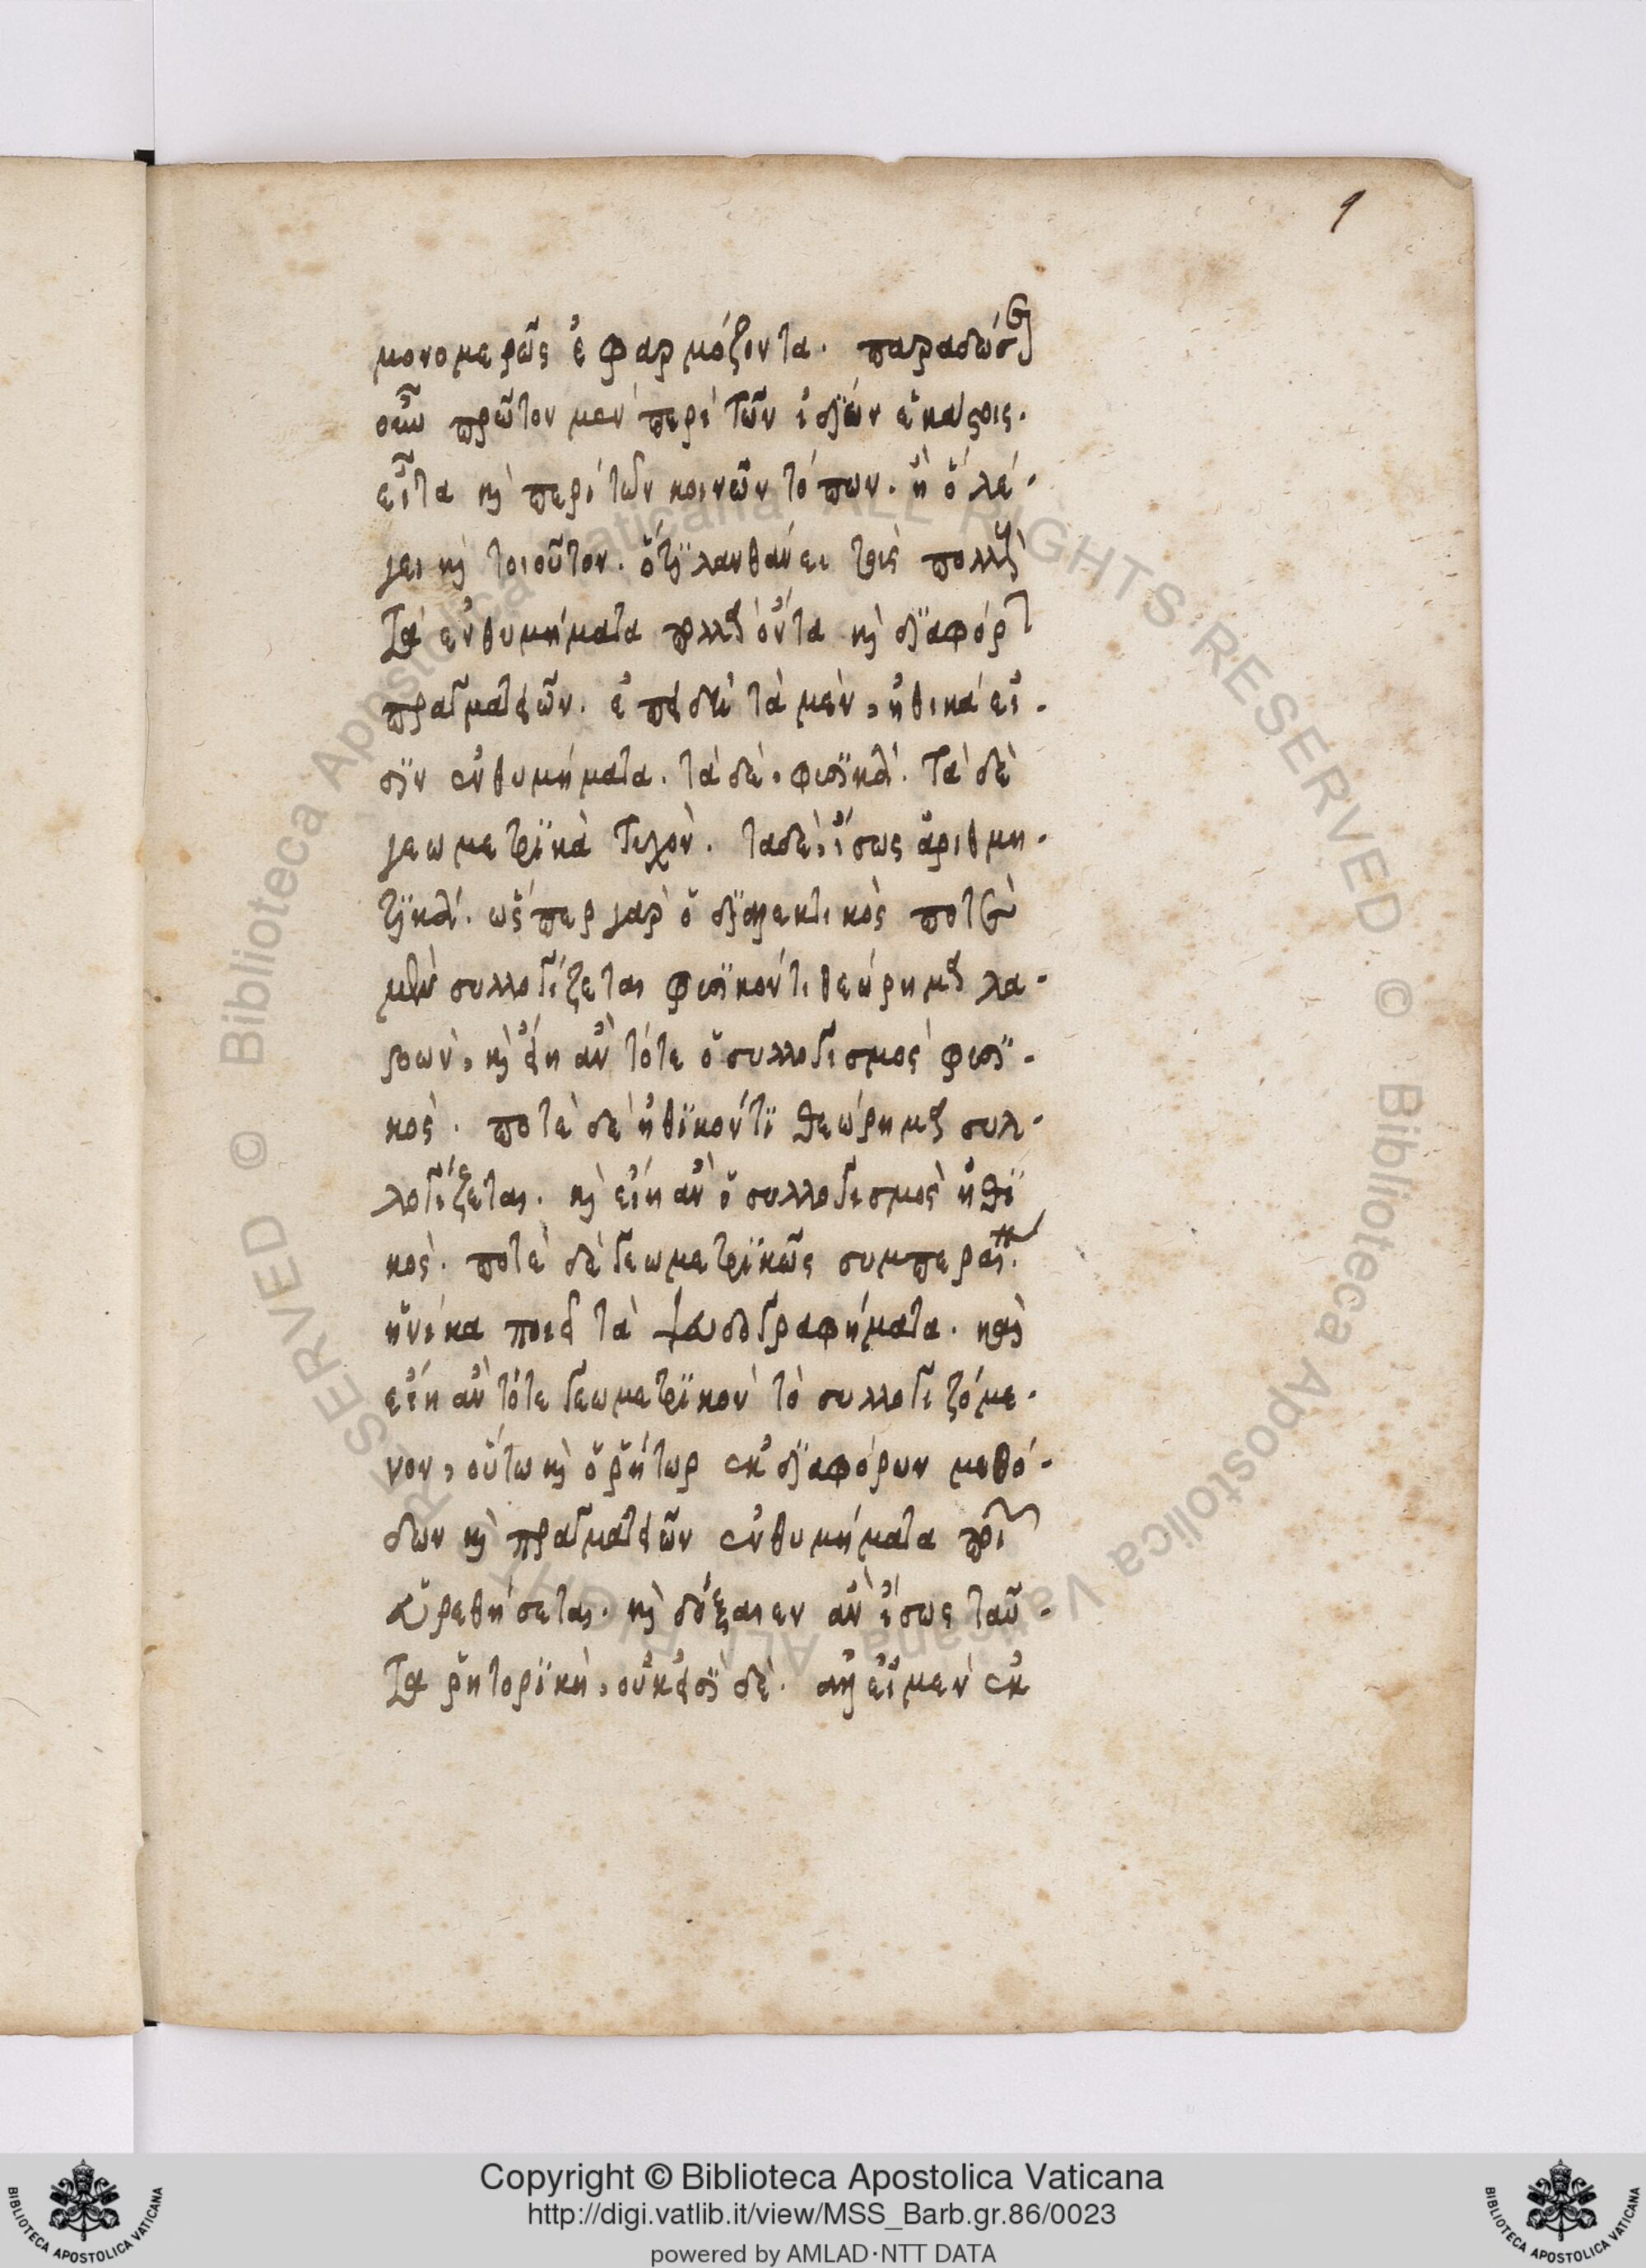 9
μονομερῶς ἐφαρμόζοντα. παραδώσει
οὖν πρῶτον μὲν περὶ τῶν ἰδίων ἑκάστοις.
εἶτα καὶ περὶ τῶν κοινῶν τόπων. ἢ ὃ λέ-
γει καὶ τοιοῦτον. ὅτι λανθάνει τοὺς πολλοὺς
τὰ ἐνθυμήματα πολλῶν ὄντα καὶ διαφόρων
πραγματειῶν. ἐπειδὴ τὰ μὲν, ἠθικά εἰ-
σιν ἐνθυμήματα. τὰ δὲ, φυσικά. τὰ δὲ
γεωμετρικὰ τυχὸν. τὰ δὲ, ἴσως ἀριθμη-
τικά. ὥσπερ γὰρ ὁ διαλεκτικὸς ποτὲ
μὲν συλλογίζεται φυσικόν τι θεώρημα λα-
βὼν, καὶ εἴη ἂν τότε ὁ συλλογισμὸς φυσι-
κὸς. ποτὲ δὲ ἠθικόν τι θεώρημα συλ-
λογίζεται. καὶ εἴη ἂν ὁ συλλογισμὸς ἠθι
κὸς. ποτὲ δὲ γεωμετρικῶς συμπεραίνει.
ἡνίκα ποιεῖ τὰ ψευδογραφήματα. καὶ
εἴη ἂν τότε γεωμετρικὸν τὸ συλλογιζόμε-
νον, οὕτω καὶ ὁ ῥήτωρ ἐκ διαφόρων μεθό-
δων καὶ πραγματειῶν ἐνθυμήματα ποιεῖν
εὑρεθήσεται. καὶ δόξαιεν ἂν ἴσως ταῦ-
τα ῥητορικὴ, οὐκ εἰσὶ δὲ. ἀλλ' εἰ μὲν ἐκ
© Biblioteca Apostolica Vaticana ALL RIGHTS RESERVED © Biblioteca Apostolica Vaticana ALL RIGHTS RESERVED
Copyright © Biblioteca Apostolica Vaticana
http://digi.vatlib.it/view/MSS_Barb.gr.86/0023
powered by AMLAD·NTT DATA
BIBLIOTECA APOSTOLICA VATICANA
BIBLIOTECA APOSTOLICA VATICANA